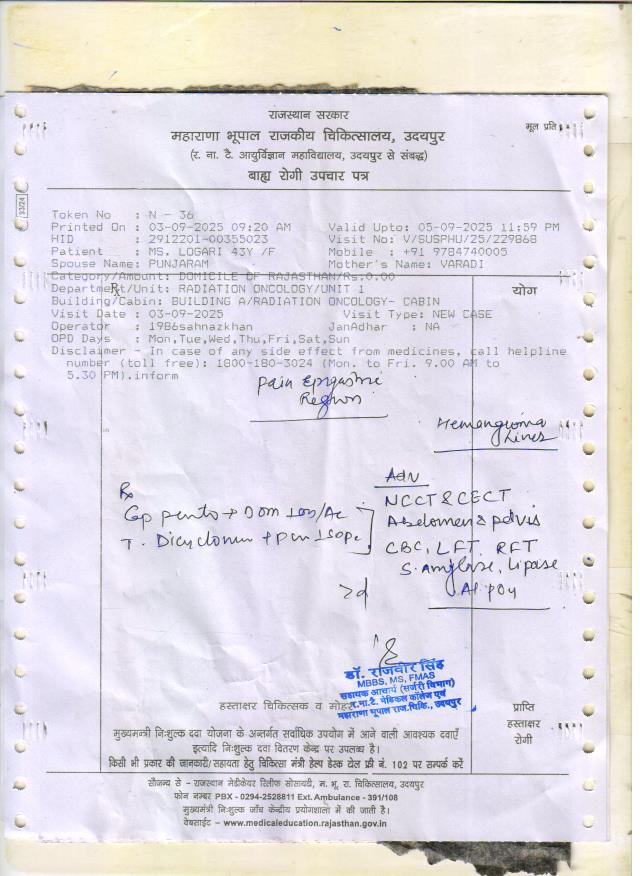 राजस्थान सरकार
महाराणा भूपाल राजकीय चिकित्सालय, उदयपुर
मूल प्रति
(र. ना. टै. आयुर्विज्ञान महाविद्यालय, उदयपुर से संबद्ध)
बाह्य रोगी उपचार पत्र
33/24
Token No : N - 36
Printed On : 03-09-2025 09:20 AM Valid Upto: 05-09-2025 11:59 PM
HID : 2912201-00355023 Visit No: V/SUSPHU/25/229868
Patient : MS. LOGARI 43Y /F Mobile : +91 9784740005
Spouse Name: PUNJARAM Mother's Name: VARADI
Category/Amount: DOMICILE OF RAJASTHAN/Rs.0.00
Department/Unit: RADIATION ONCOLOGY/UNIT 1
योग
Building/Cabin: BUILDING A/RADIATION ONCOLOGY- CABIN
Visit Date : 03-09-2025 Visit Type: NEW CASE
Operator : 1986sahnazkhan JanAadhar : NA
OPD Days : Mon,Tue,Wed,Thu,Fri,Sat,Sun
Disclaimer - In case of any side effect from medicines, call helpline
number (toll free): 1800-180-3024 (Mon. to Fri. 9.00 AM to
5.30 PM).inform
Pain Epigastric
Region
Hemangioma
Liver
Adv
Rx
NCCT & CECT
Cap panto + Dom
Abdomen & pelvis
T.
CBC, LFT, RFT
S. Amylase, Lipase
डॉ. राजवीर सिंह
MBBS, MS, FMAS
सहायक आचार्य (सर्जरी विभाग)
र.ना.टै. मेडिकल कॉलेज एवं
महाराणा भूपाल राज.चिकि., उदयपुर
हस्ताक्षर चिकित्सक व मोहर
प्राप्ति
हस्ताक्षर
रोगी
मुख्यमन्त्री निःशुल्क दवा योजना के अन्तर्गत सर्वाधिक उपयोग में आने वाली आवश्यक दवाएँ
इत्यादि निःशुल्क दवा वितरण केन्द्र पर उपलब्ध है।
किसी भी प्रकार की जानकारी/सहायता हेतु चिकित्सा मंत्री हेल्प डेस्क टोल फ्री नं. 102 पर सम्पर्क करें
सौजन्य से - राजस्थान मेडीकेयर रिलीफ सोसायटी, म. भू. रा. चिकित्सालय, उदयपुर
फोन नम्बर PBX - 0294-2528811 Ext. Ambulance - 391/108
मुख्यमंत्री निःशुल्क जाँच केन्द्रीय प्रयोगशाला में की जाती है।
वेबसाईट - www.medicaleducation.rajasthan.gov.in